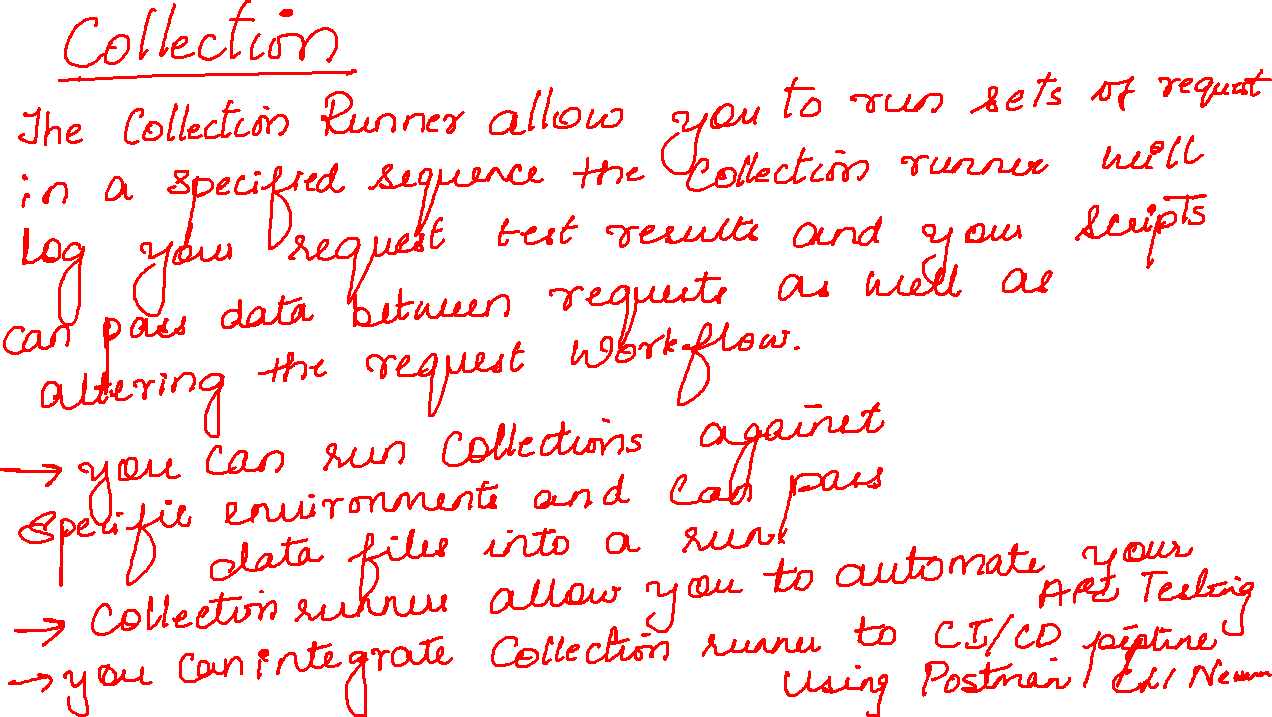 Collection
The Collection Runner allow you to run sets of request
in a specified sequence the Collection runner will
Log your request test results and your scripts
can pass data between requests as well as
altering the request workflow.
→ you can run Collections against
specific environments and can pass
data files into a run.
→ Collection runner allow you to automate your
API Testing
→ you can integrate Collection runner to CI/CD pipline
Using Postman CLI Newm